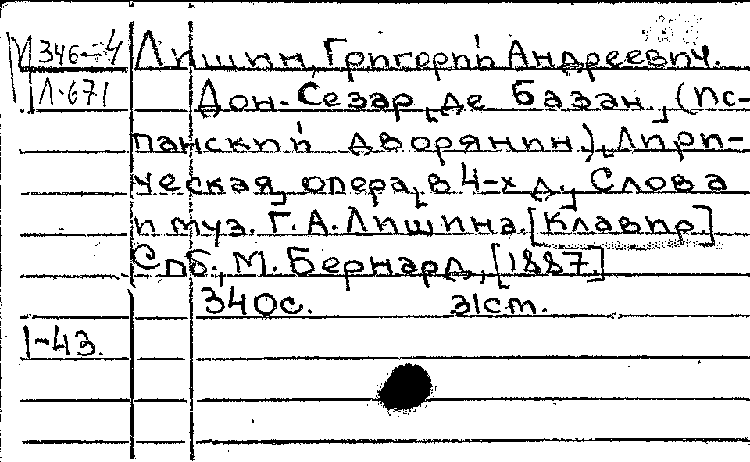 346-4 Лишин, Григорий Андреевич.
Л-671 Дон-Сезар де Базан. (Ис-
панский дворянин.) Лири-
ческая опера в 4-х д. Слова
и муз. Г. А. Лишина. [Клавир.]
Спб., М. Бернард, [1887.]
340с. 31см.
1-43.